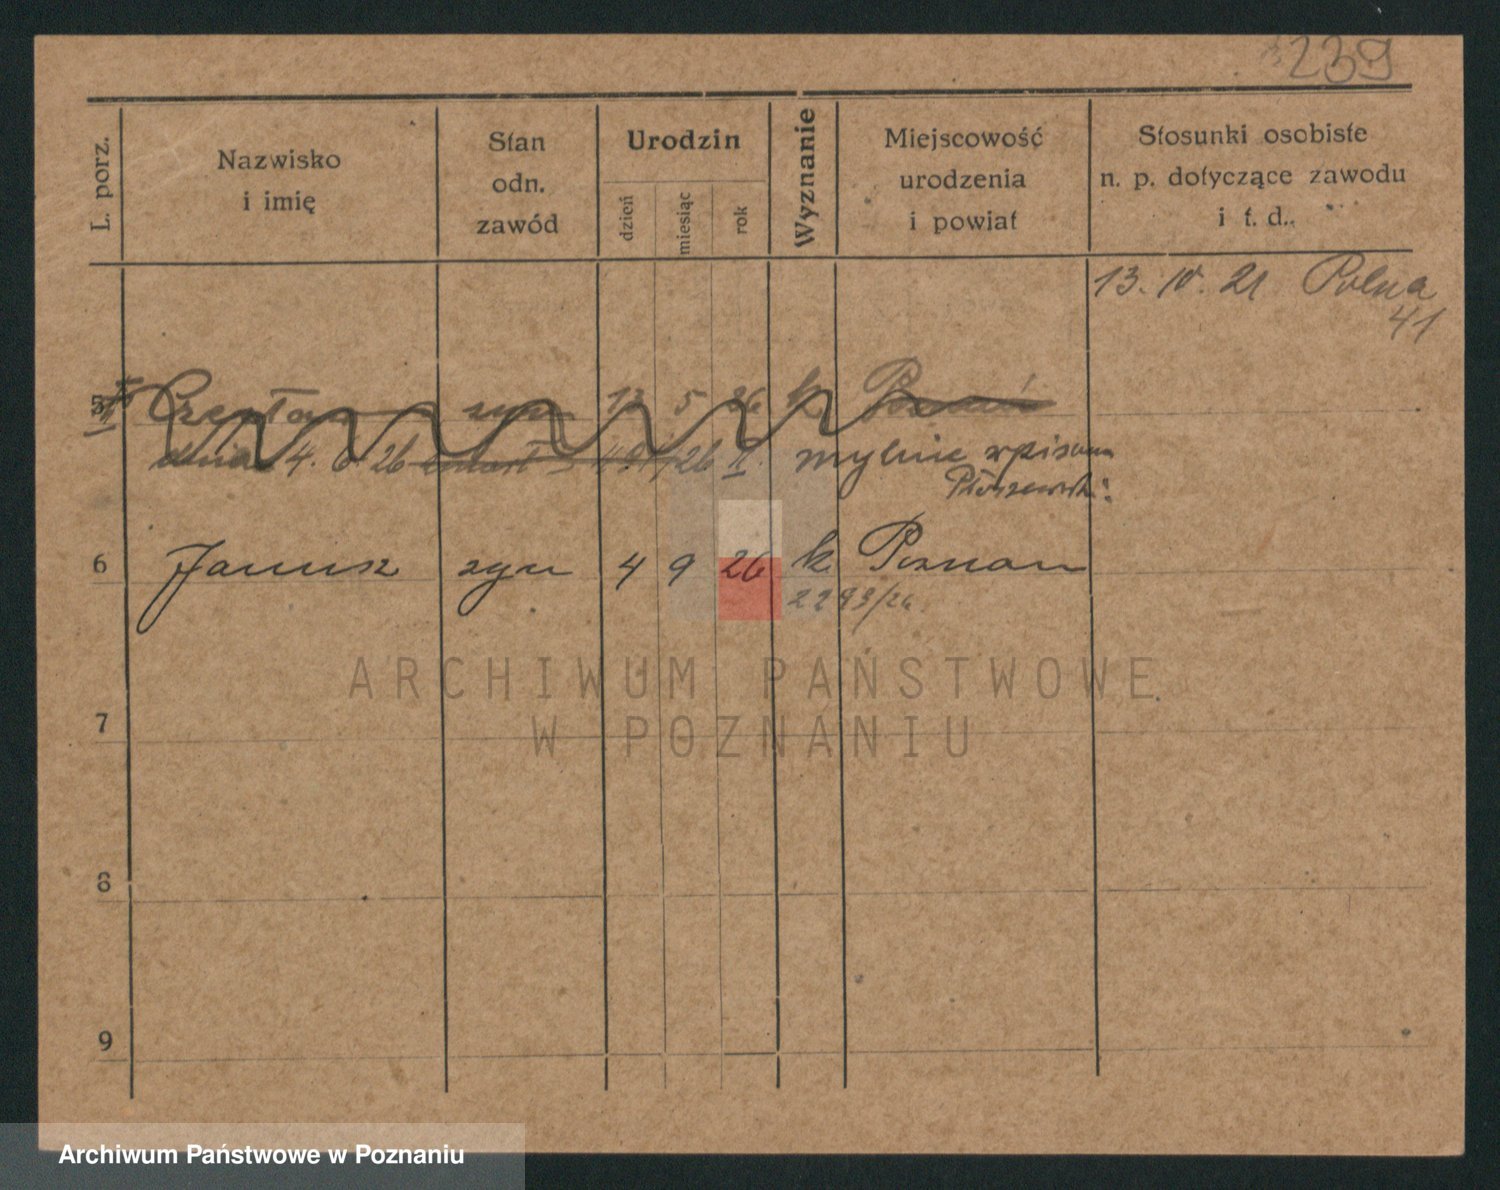 239
L. porz.
Nazwisko
i imię
Stan
odn.
zawód
Urodzin
dzień
miesiąc
rok
Wyznanie
Miejscowość
urodzenia
i powiat
Stosunki osobiste
n. p. dotyczące zawodu
i t. d.
13. IV. 21 Polna
41
5 syn 5 26 k Poznań
dnia 4. 6 26 mylnie wpisany
6 Janusz syn 4 9 26 k Poznan
2293/26.
ARCHIWUM PAŃSTWOWE
W POZNANIU
7
8
9
Archiwum Państwowe w Poznaniu